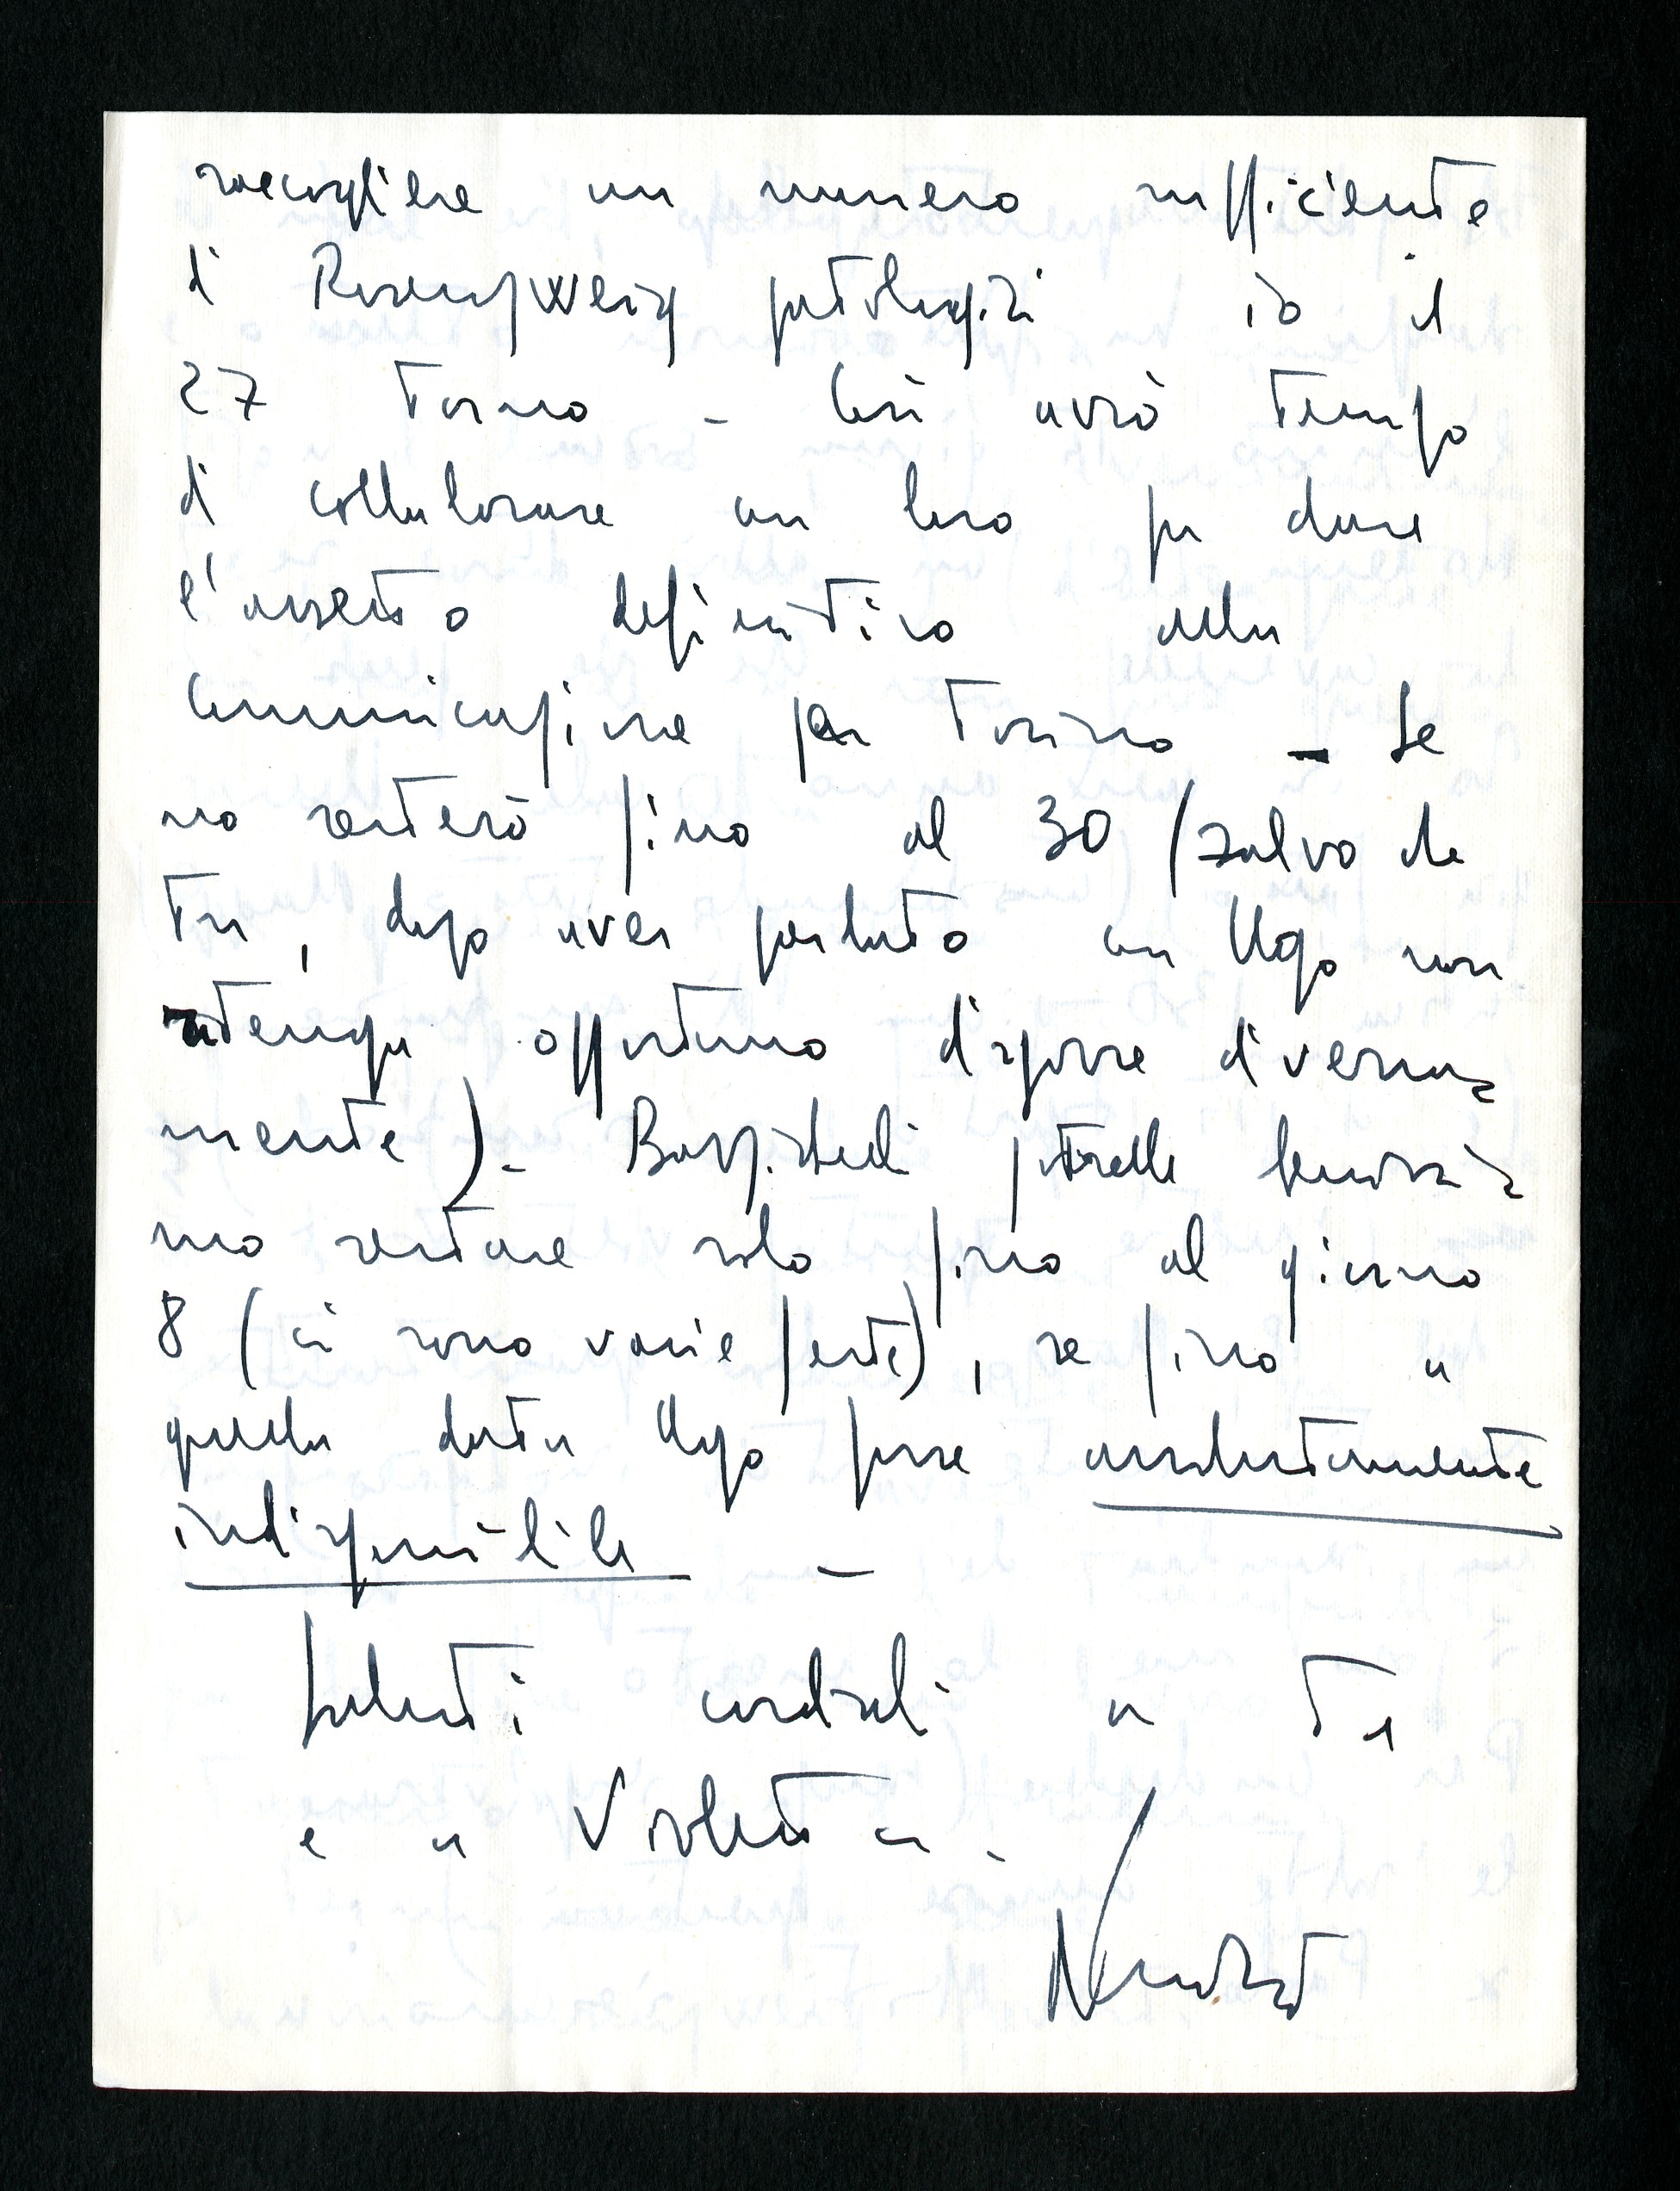 raccogliere un numero sufficiente
di Rosenzweig patologici io il
27 torno - Così avrò tempo
di collaborare con loro per dare
l'assetto definitivo alla
Comunicazione per Torino - Se
no resterò fino al 30 (salvo che
tu, dopo aver parlato con Ugo non
ritenga opportuno disporre diversa=
mente). potrebbe
restare solo fino al giorno
8 (ci sono varie feste), se fino a
quella data Ugo fosse assolutamente
indisponibile -
Saluti cordiali a Te
e a Violetta.